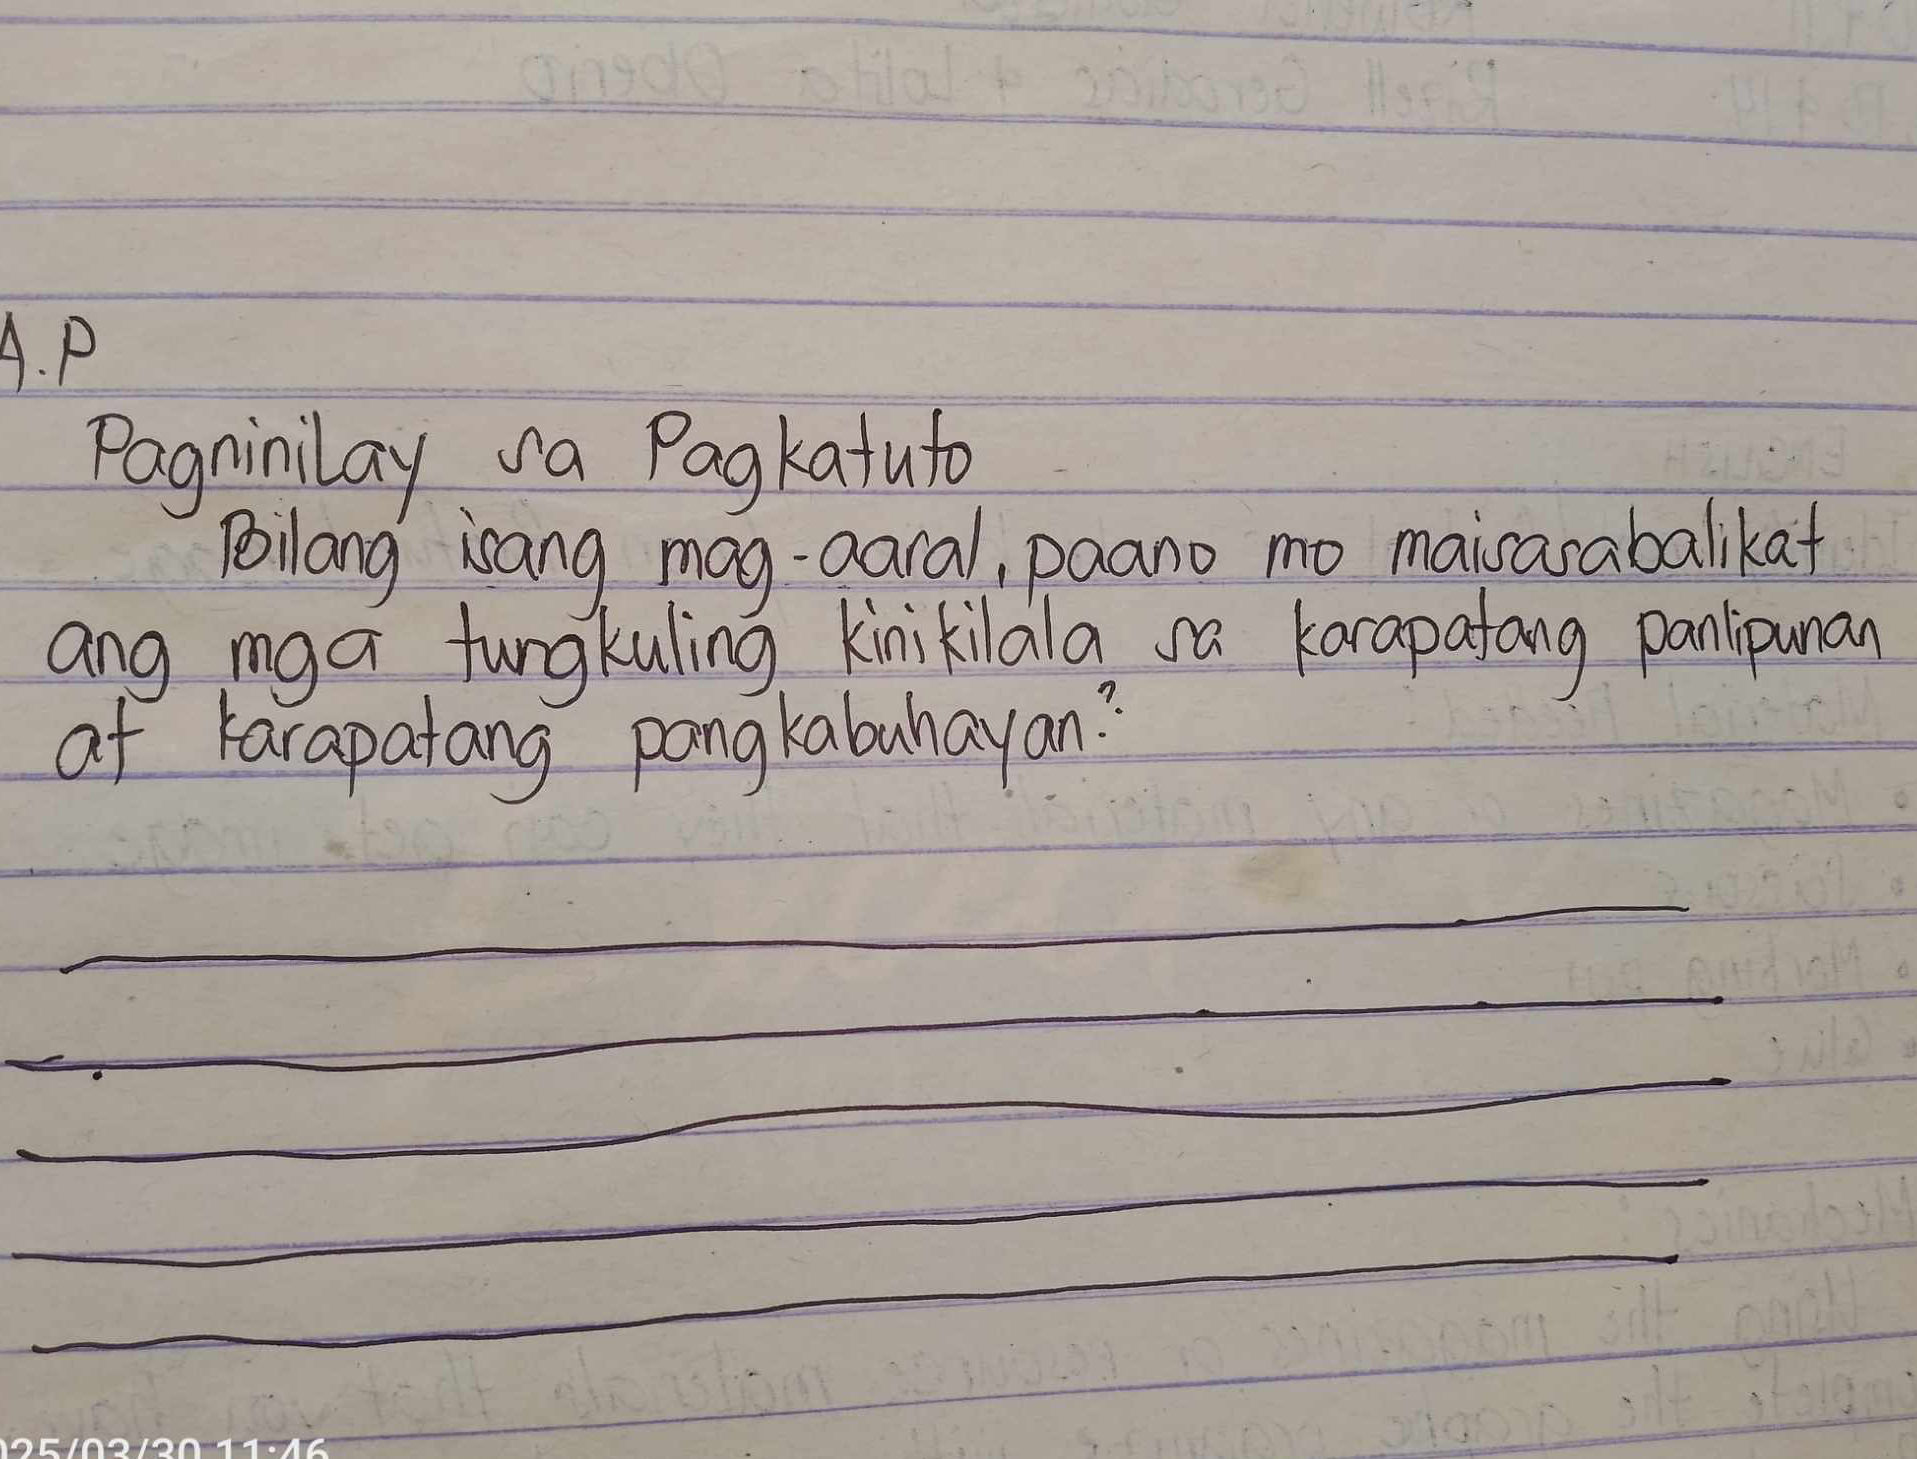 A.P
Pagninilay sa Pagkatuto
Bilang isang mag-aaral, paano mo maisasabalikat
ang mga tungkuling kinikilala sa karapatang panlipunan
at karapatang pangkabuhayan?
025/03/30 11:46